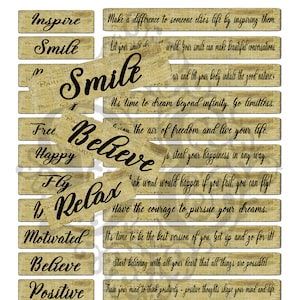 Inspire
Make a difference to someone elses life by inspiring them.
Smile
Let your smile world. Your smile can make beautiful conversations.
and let your body inhale the good nature
Smile
It's time to dream beyond infinity. Go limitless.
Free
the air of freedom and live your life.
Believe
Happy
steal your happiness in any way.
Fly
what would happen if you fail, you can fly!
Relax
Have the courage to pursue your dreams.
Motivated
It's time to be the best version of you, get up and go for it!
Believe
Start believing with all your heart that all things are possible!
Positive
Train your mind to think positively - positive thoughts shape and drive